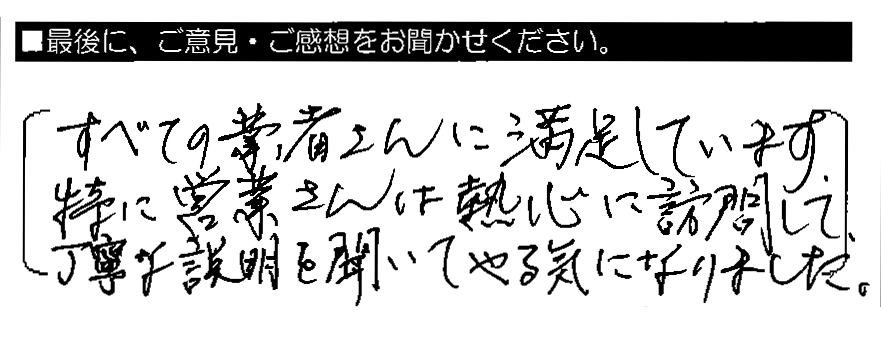 ■最後に、ご意見・ご感想をお聞かせください。
すべての業者さんに満足しています
特に営業さんは熱心に訪問して、
丁寧な説明を聞いてやる気になりました。